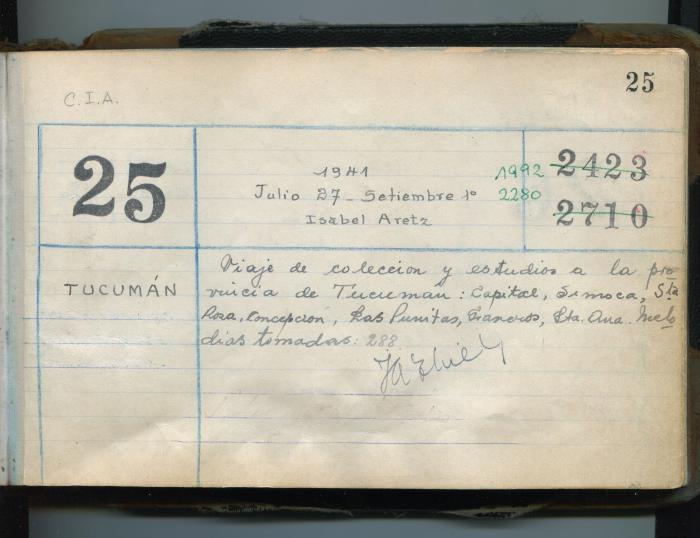 25
C.I.A.
25
1941
Julio 27 - Setiembre 1º
Isabel Aretz
1992
2280
2423
2710
TUCUMÁN
Viaje de coleccion y estudios a la pro-
vincia de Tucuman: Capital, Simoca, Sta
Rosa, Concepción, Las Punitas, Graneros, Sta. Ana. Melo
dias tomadas: 288